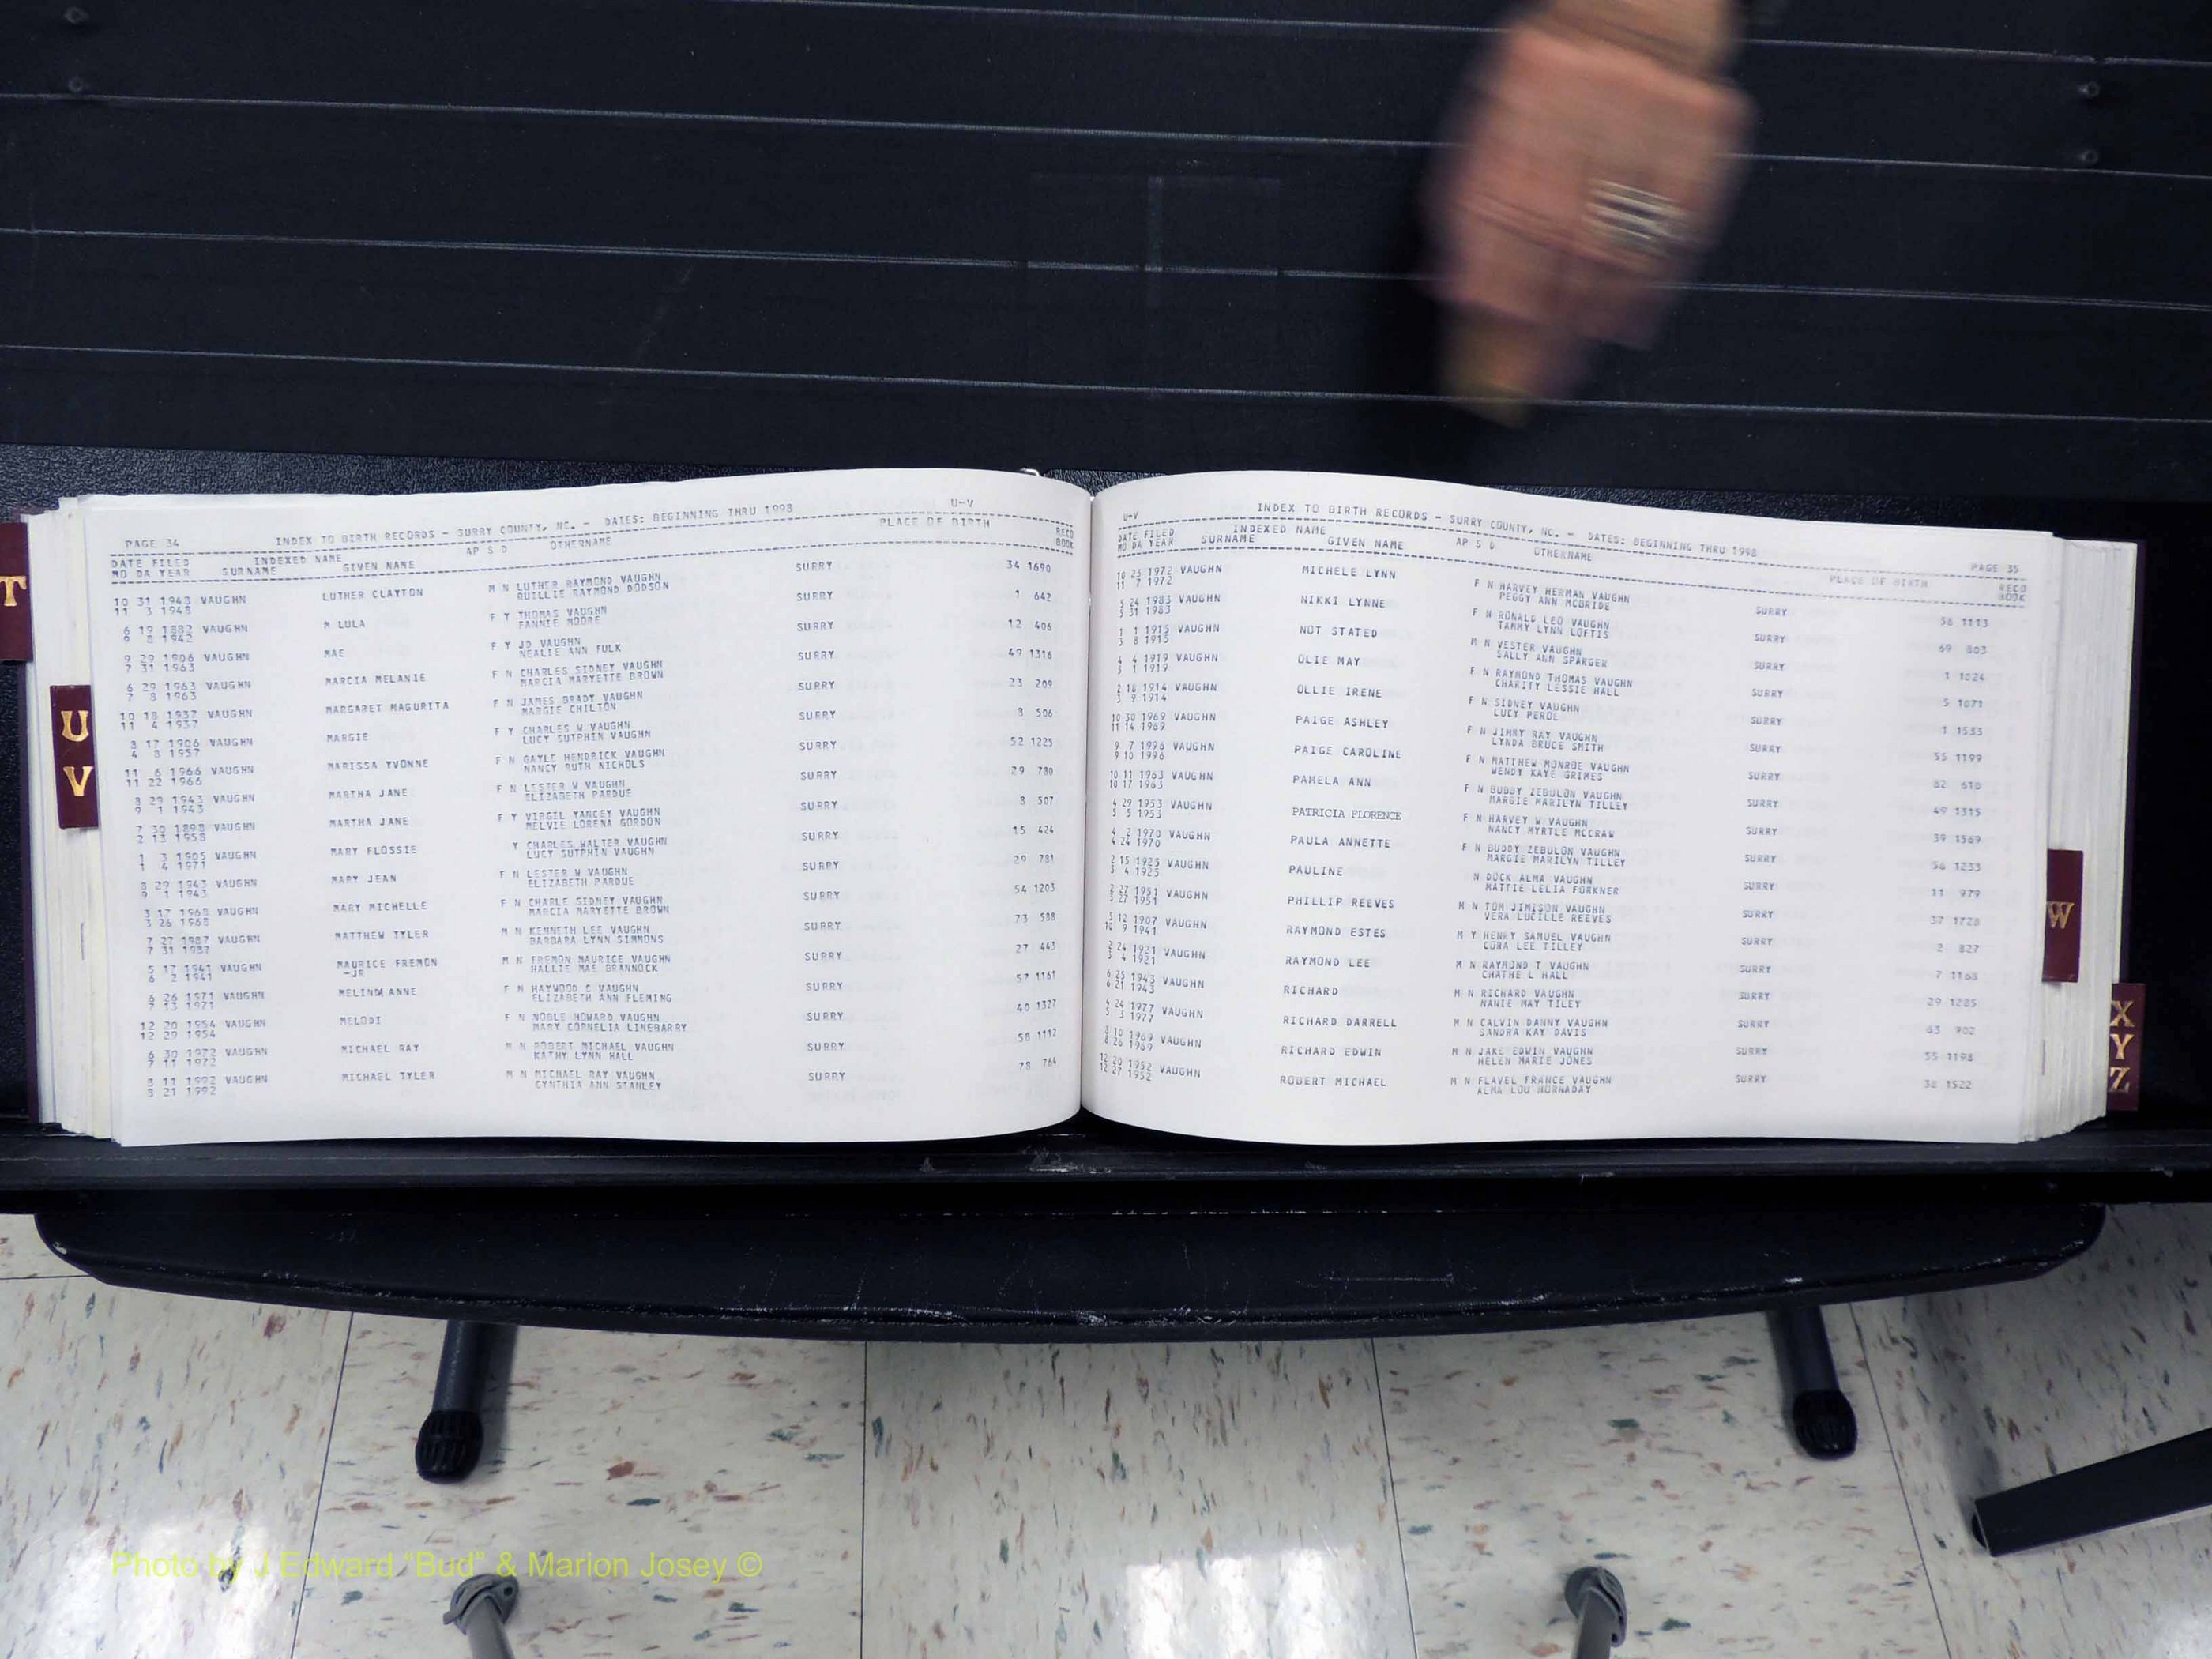 T
U
V
PAGE 34 INDEX TO BIRTH RECORDS - SURRY COUNTY, NC. - DATES: BEGINNING THRU 1998 U-V
DATE FILED INDEXED NAME AP S D OTHERNAME PLACE OF BIRTH RECO
MO DA YEAR SURNAME GIVEN NAME BOOK
10 31 1948 VAUGHN LUTHER CLAYTON M N LUTHER RAYMOND VAUGHN SURRY 34 1690
11 3 1948 QUILLIE RAYMOND DODSON
6 19 1882 VAUGHN M LULA F Y THOMAS VAUGHN SURRY 1 642
9 8 1942 FANNIE MOORE
9 29 1906 VAUGHN MAE F Y JD VAUGHN SURRY 12 406
7 31 1963 NEALIE ANN FULK
6 29 1963 VAUGHN MARCIA MELANIE F N CHARLES SIDNEY VAUGHN SURRY 49 1316
7 8 1963 MARCIA MARYETTE BROWN
10 18 1937 VAUGHN MARGARET MAGURITA F N JAMES BRADY VAUGHN SURRY 23 209
11 4 1937 MARGIE CHILTON
8 17 1906 VAUGHN MARGIE F Y CHARLES W VAUGHN SURRY 8 506
4 8 1957 LUCY SUTPHIN VAUGHN
11 6 1966 VAUGHN MARISSA YVONNE F N GAYLE HENDRICK VAUGHN SURRY 52 1225
11 22 1966 NANCY RUTH NICHOLS
8 29 1943 VAUGHN MARTHA JANE F N LESTER W VAUGHN SURRY 29 780
9 1 1943 ELIZABETH PARDUE
7 30 1898 VAUGHN MARTHA JANE F Y VIRGIL YANCEY VAUGHN SURRY 8 507
2 13 1958 MELVIE LORENA GORDON
1 3 1905 VAUGHN MARY FLOSSIE Y CHARLES WALTER VAUGHN SURRY 15 424
1 4 1971 LUCY SUTPHIN VAUGHN
8 29 1943 VAUGHN MARY JEAN F N LESTER W VAUGHN SURRY 29 781
9 1 1943 ELIZABETH PARDUE
3 17 1968 VAUGHN MARY MICHELLE F N CHARLE SIDNEY VAUGHN SURRY 54 1203
3 26 1968 MARCIA MARYETTE BROWN
7 27 1987 VAUGHN MATTHEW TYLER M N KENNETH LEE VAUGHN SURRY 73 588
7 31 1987 BARBARA LYNN SIMMONS
5 17 1941 VAUGHN MAURICE FREMON M N FREMON MAURICE VAUGHN SURRY 27 443
6 2 1941 -JR HALLIE MAE BRANNOCK
6 26 1971 VAUGHN MELINDA ANNE F N HAYWOOD C VAUGHN SURRY 57 1161
7 13 1971 ELIZABETH ANN FLEMING
12 20 1954 VAUGHN MELODI F N NOBLE HOWARD VAUGHN SURRY 40 1327
12 29 1954 MARY CORNELIA LINEBARRY
6 30 1972 VAUGHN MICHAEL RAY M N ROBERT MICHAEL VAUGHN SURRY 58 1112
7 11 1972 KATHY LYNN HALL
8 11 1992 VAUGHN MICHAEL TYLER M N MICHAEL RAY VAUGHN SURRY 78 764
8 21 1992 CYNTHIA ANN STANLEY
U-V INDEX TO BIRTH RECORDS - SURRY COUNTY, NC. - DATES: BEGINNING THRU 1998 PAGE 35
DATE FILED INDEXED NAME AP S D OTHERNAME PLACE OF BIRTH RECO
MO DA YEAR SURNAME GIVEN NAME BOOK
10 23 1972 VAUGHN MICHELE LYNN F N HARVEY HERMAN VAUGHN SURRY 58 1113
11 7 1972 PEGGY ANN MCBRIDE
5 24 1983 VAUGHN NIKKI LYNNE F N RONALD LEO VAUGHN SURRY 69 803
5 31 1983 TAMMY LYNN LOFTIS
1 1 1915 VAUGHN NOT STATED M N VESTER VAUGHN SURRY 1 1024
3 8 1915 SALLY ANN SPARGER
4 4 1919 VAUGHN OLIE MAY F N RAYMOND THOMAS VAUGHN SURRY 5 1071
5 1 1919 CHARITY LESSIE HALL
2 18 1914 VAUGHN OLLIE IRENE F N SIDNEY VAUGHN SURRY 1 1533
3 9 1914 LUCY PERDE
10 30 1969 VAUGHN PAIGE ASHLEY F N JIMMY RAY VAUGHN SURRY 55 1199
11 14 1969 LYNDA BRUCE SMITH
9 7 1996 VAUGHN PAIGE CAROLINE F N MATTHEW MONROE VAUGHN SURRY 82 610
9 10 1996 WENDY KAYE GRIMES
10 11 1963 VAUGHN PAMELA ANN F N BUDDY ZEBULON VAUGHN SURRY 49 1315
10 17 1963 MARGIE MARILYN TILLEY
4 29 1953 VAUGHN PATRICIA FLORENCE F N HARVEY W VAUGHN SURRY 39 1569
5 5 1953 NANCY MYRTLE MCCRAW
4 2 1970 VAUGHN PAULA ANNETTE F N BUDDY ZEBULON VAUGHN SURRY 56 1233
4 24 1970 MARGIE MARILYN TILLEY
2 15 1925 VAUGHN PAULINE N DOCK ALMA VAUGHN SURRY 11 979
3 4 1925 MATTIE LELIA FORKNER
2 27 1951 VAUGHN PHILLIP REEVES M N TOM JIMISON VAUGHN SURRY 37 1728
3 27 1951 VERA LUCILLE REEVES
5 12 1907 VAUGHN RAYMOND ESTES M Y HENRY SAMUEL VAUGHN SURRY 2 827
10 9 1941 CORA LEE TILLEY
2 24 1921 VAUGHN RAYMOND LEE M N RAYMOND T VAUGHN SURRY 7 1168
3 4 1921 CHATHE L HALL
6 25 1943 VAUGHN RICHARD M N RICHARD VAUGHN SURRY 29 1285
6 21 1943 NANIE MAY TILEY
4 24 1977 VAUGHN RICHARD DARRELL M N CALVIN DANNY VAUGHN SURRY 63 902
5 3 1977 SANDRA KAY DAVIS
8 10 1969 VAUGHN RICHARD EDWIN M N JAKE EDWIN VAUGHN SURRY 55 1198
8 26 1969 HELEN MARIE JONES
12 20 1952 VAUGHN ROBERT MICHAEL M N FLAVEL FRANCE VAUGHN SURRY 38 1522
12 27 1952 ALMA LOU HORNADAY
W
X
Y
Z
Photo by J Edward “Bud” & Marion Josey ©